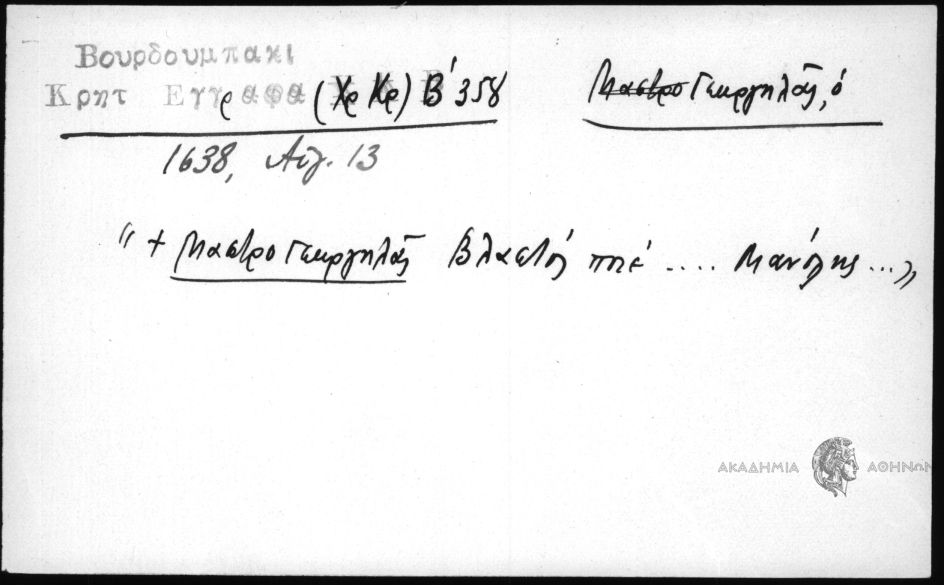 Βουρδουμπακι
Κρητ Εγγραφα (Χρ Κρ) Β' 358 ΜαστροΓεωργηλᾶς, ὁ
1638, Αὐγ. 13
"+ ΜαστροΓεωργηλᾶς Βλαστός ποτέ .... Μανόλης ..."
ΑΚΑΔΗΜΙΑ ΑΘΗΝΩΝ